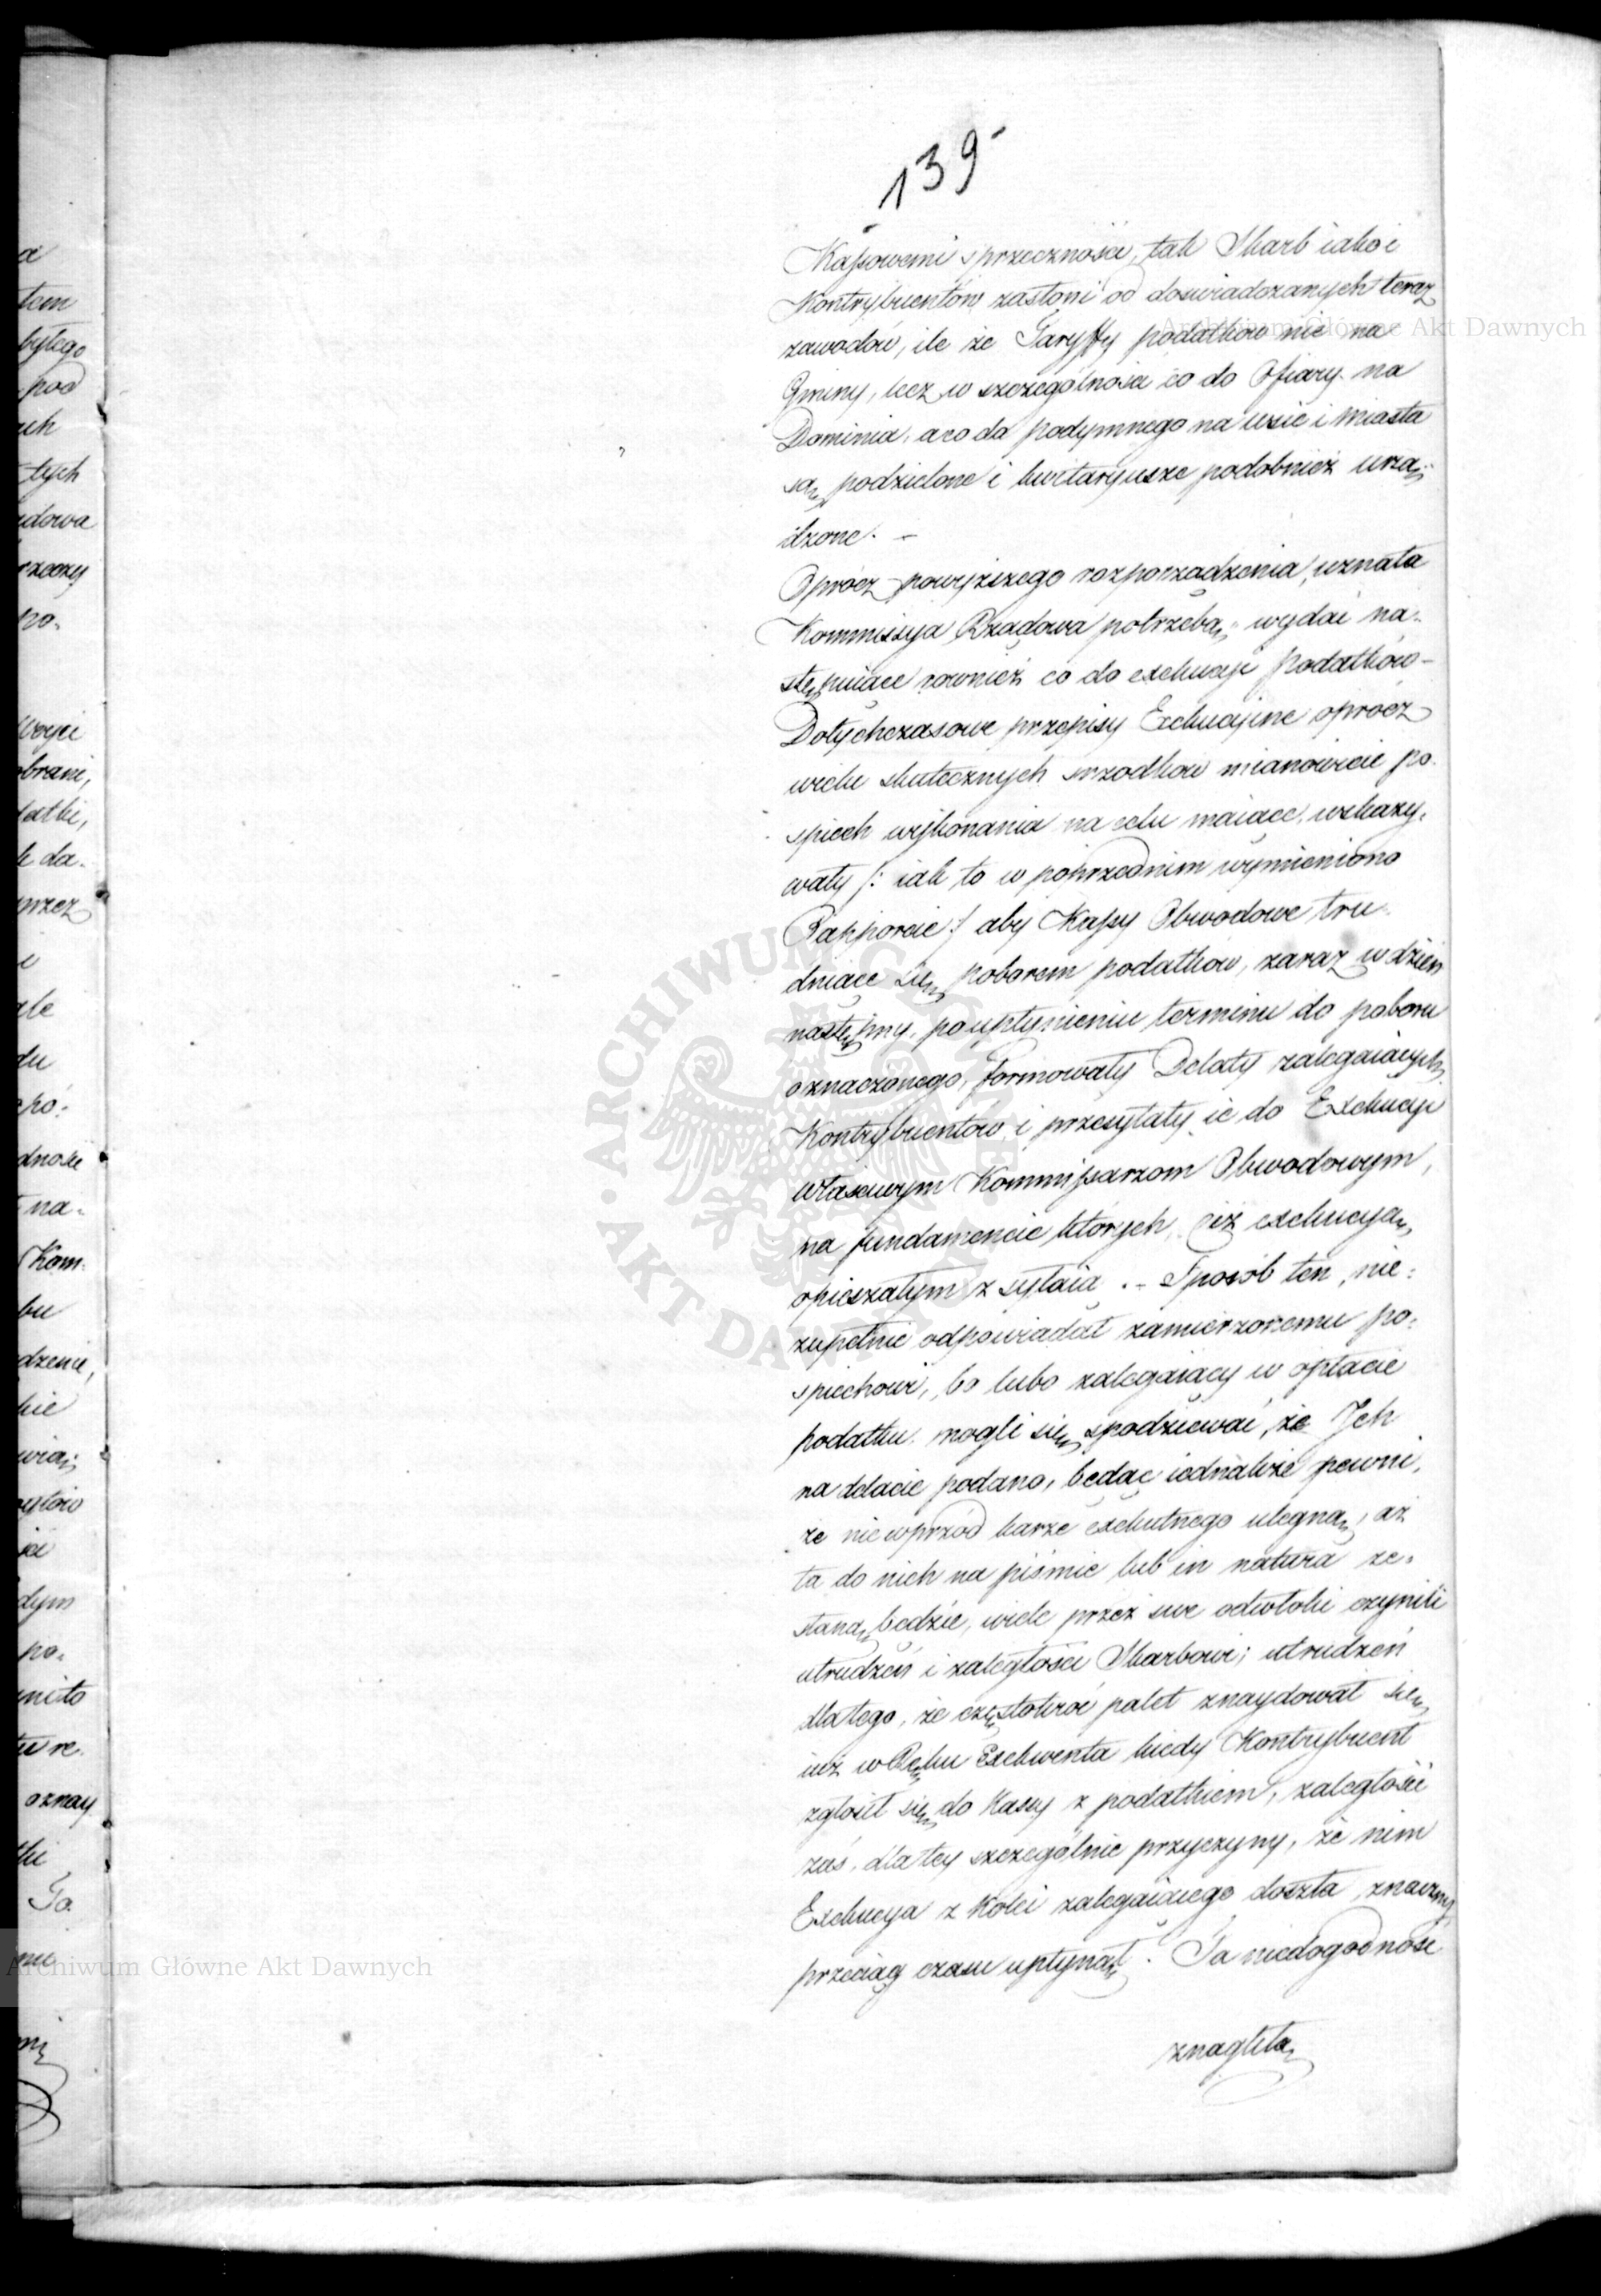 139
Kassowemi sprzeczności, tak Skarb iako i
Kontrybuentów zasłoni od doswiadczanych teraz
zawodów, ile że Taryffy podatków nie na
Gminy, lecz w szczególności co do Ofiary na
Dominia, a co do podymnego na wsie i miasta
są podzielone i kwitaryusze podobnież urzą-
dzone. –
Oprócz powyższego rozporządzenia, uznała
Kommissyja Rządowa potrzebą, wydać na-
stępuiące rownież co do exekucyi podatków –
Dotychczasowe przepisy Exekucyine oprócz
wielu skutecznych srzodków mianowicie po-
spiech wykonania na celu maiące, wskazy-
wały /: iak to w poprzednim wymieniono
Rapporcie :/ aby Kassy Obwodowe tru-
dniące się poborem podatków, zaraz w dzien
następny, po upłynieniu terminu do poboru
oznaczonego, formowały Delaty zalegaiących
Kontrybuentów i przesyłały ie do Exekucyi
właściwym Kommissarzom Obwodowym,
na fundamencie których, ciż exekucyą
opieszałym zsyłaią. – Sposób ten, nie-
zupełnie odpowiadał zamierzonemu po-
spiechowi, bo lubo zalegaiący w opłacie
podatku mogli się spodziewać, że Ich
na delacie podano, będąc iednakże pewni,
że nie wprzód karze exekutnego ulegną, aż
ta do nich na pismie lub in natura ze-
słaną będzie, wiele przez swe odwłoki czynili
utrudzeń i zaległości Skarbowi; utrudzeń
dlatego, że częstokroć palet znaydował się
iuż w Ręku Exekwenta kiedy Kontrybuent
zgłosił się do Kassy z podatkiem, zaległości
zaś, dla tey szczególnie przyczyny, że nim
Exekucya z Kolei zalegaiącego doszła, znaczny
przeciąg czasu upłynął. Ta niedogodność
znagliła
Archiwum Główne Akt Dawnych
Archiwum Główne Akt Dawnych
ARCHIWUM GŁÓWNE AKT DAWNYCH